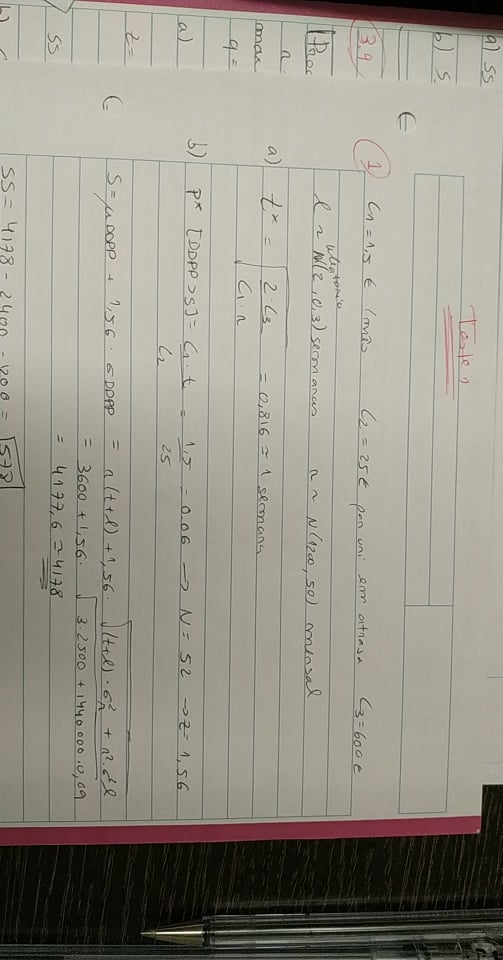 a) SS
b) S
3.9
n
max
q =
a)
z =
SS
Teste 1
1 C1 = 1,5 € /mês C2 = 25 € por uni em atraso C3 = 600 €
aleatorio
l ~ N(2, 0,3) semanas r ~ N(1200, 50) mensal
a) t* = √(2·C3 / C1·r) = 0,816 ≃ 1 semana
b) P* [DDPP > S] = C1·t / C2 = 1,5 / 25 = 0.06 → N = 52 → z = 1,56
S = μDDPP + 1,56 · σDDPP = r(t+l) + 1,56 · √((t+l) · σr² + r² · σ²l
= 3600 + 1,56 · √(3·2500 + 1440 000·0,09
= 4177,6 ≃ 4178
SS = 4178 - 2400 - 1200 = 578